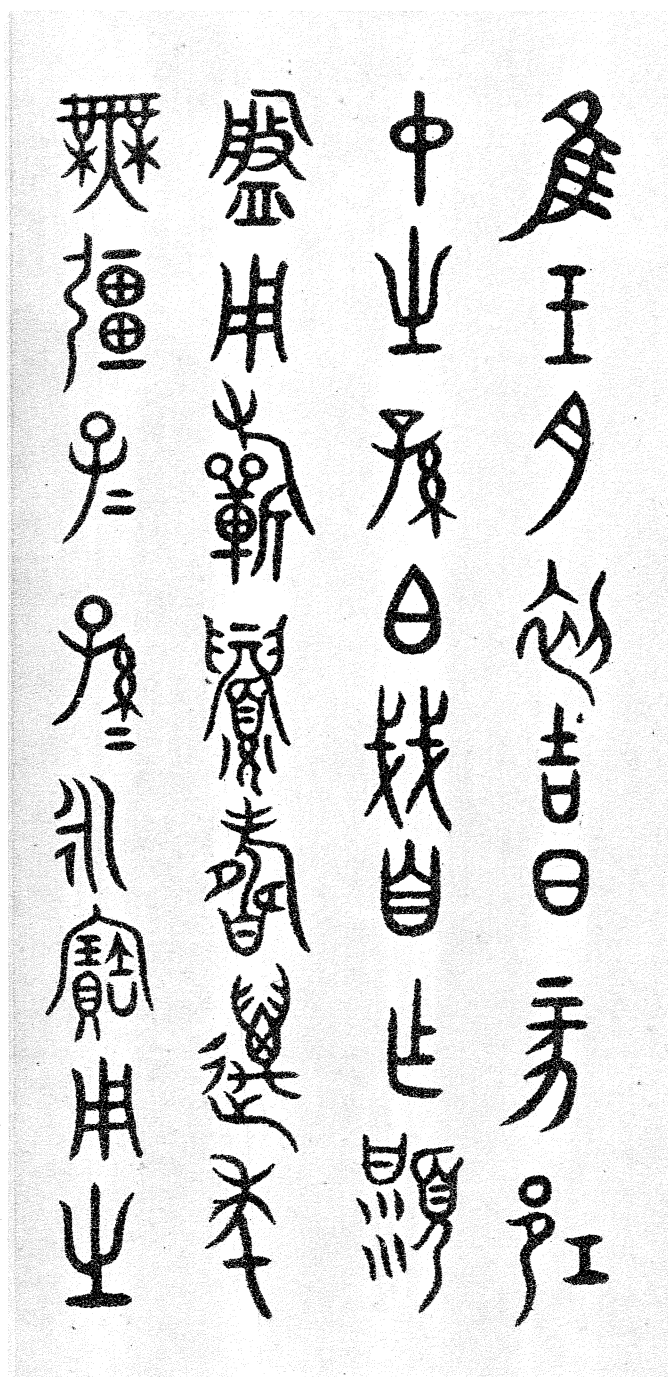 隹王月初吉丁亥邛
中之孫白戔自乍頮
盤用𣄨眉壽萬年
無彊子=孫=永寶用之